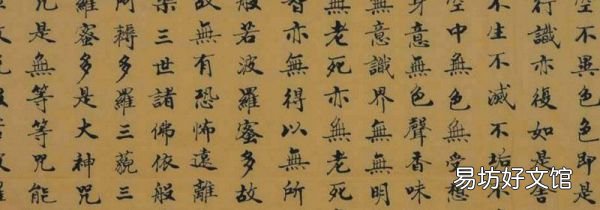 空不異色色即是
行識亦復如是舍
不生不滅不垢不
空中無色無受想
身意無色聲香味
無意識界無無明
無老死亦無老死
智亦無得以無所
般若波羅蜜多故
故無有恐怖遠離
槃三世諸佛依般
阿耨多羅三藐三
羅蜜多是大神咒
咒是無等等咒能
易坊好文馆